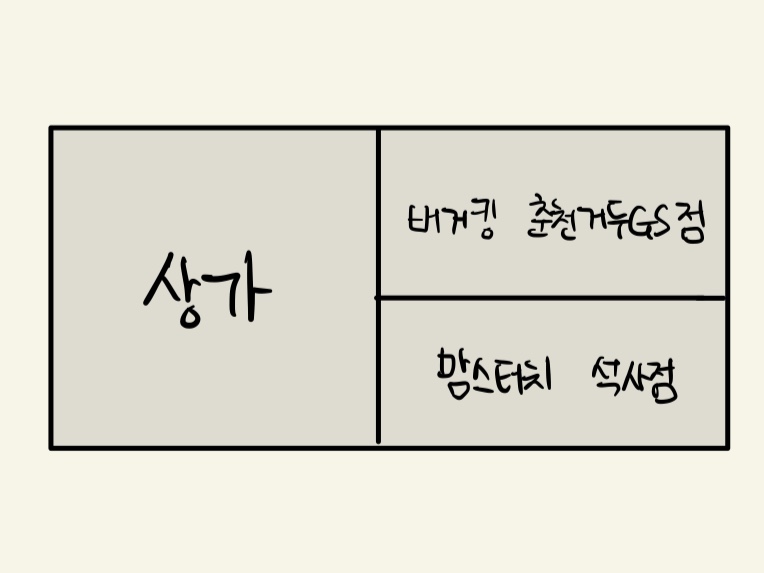 상가
버거킹 춘천거두GS점
맘스터치 석사점